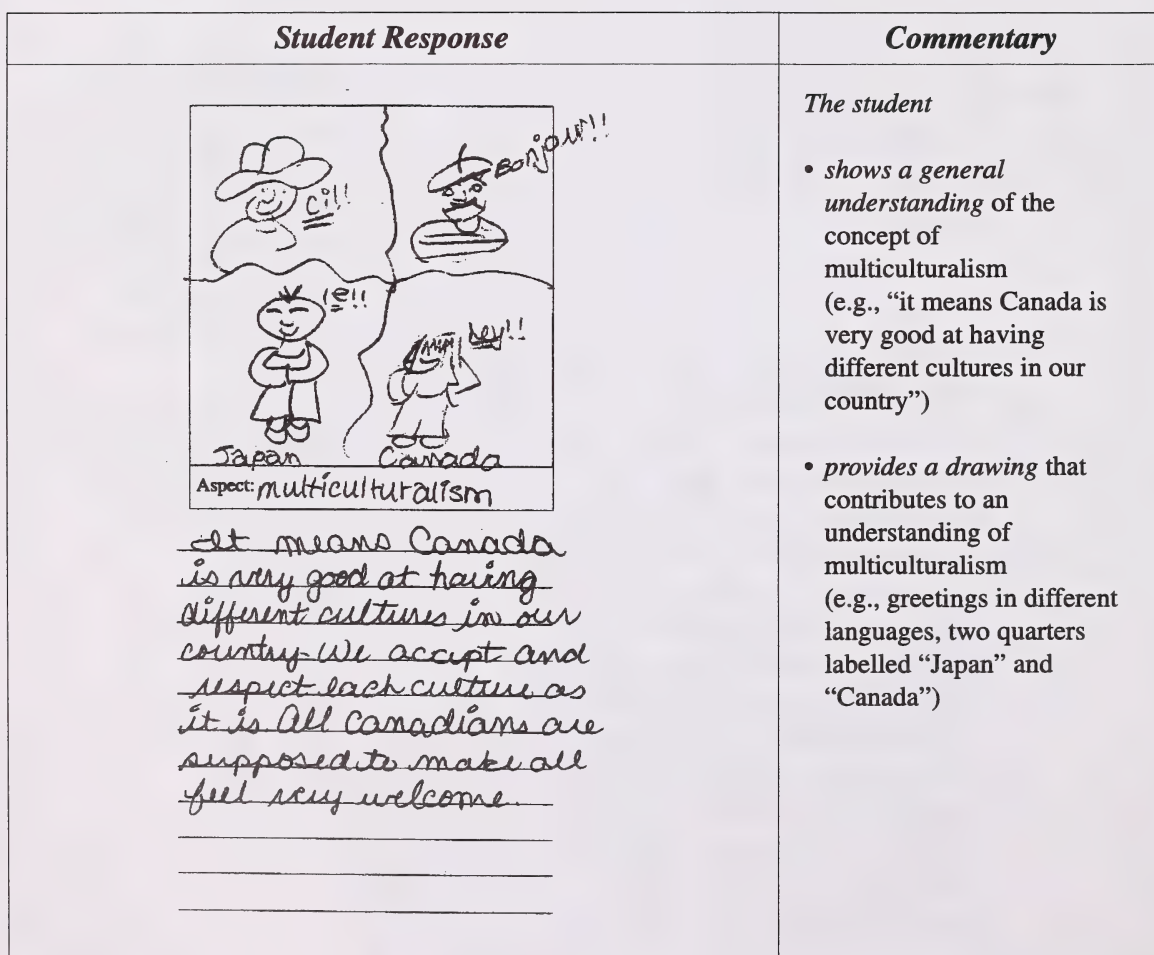 Student Response
Commentary
ci!!
Bonjour!!
ie!!
hey!!
Japan Canada
Aspect: multiculturalism
It means Canada
is very good at having
different cultures in our
country. We accept and
respect each culture as
it is. All Canadians are
supposed to make all
feel very welcome.
The student
• shows a general
understanding of the
concept of
multiculturalism
(e.g., “it means Canada is
very good at having
different cultures in our
country”)
• provides a drawing that
contributes to an
understanding of
multiculturalism
(e.g., greetings in different
languages, two quarters
labelled “Japan” and
“Canada”)